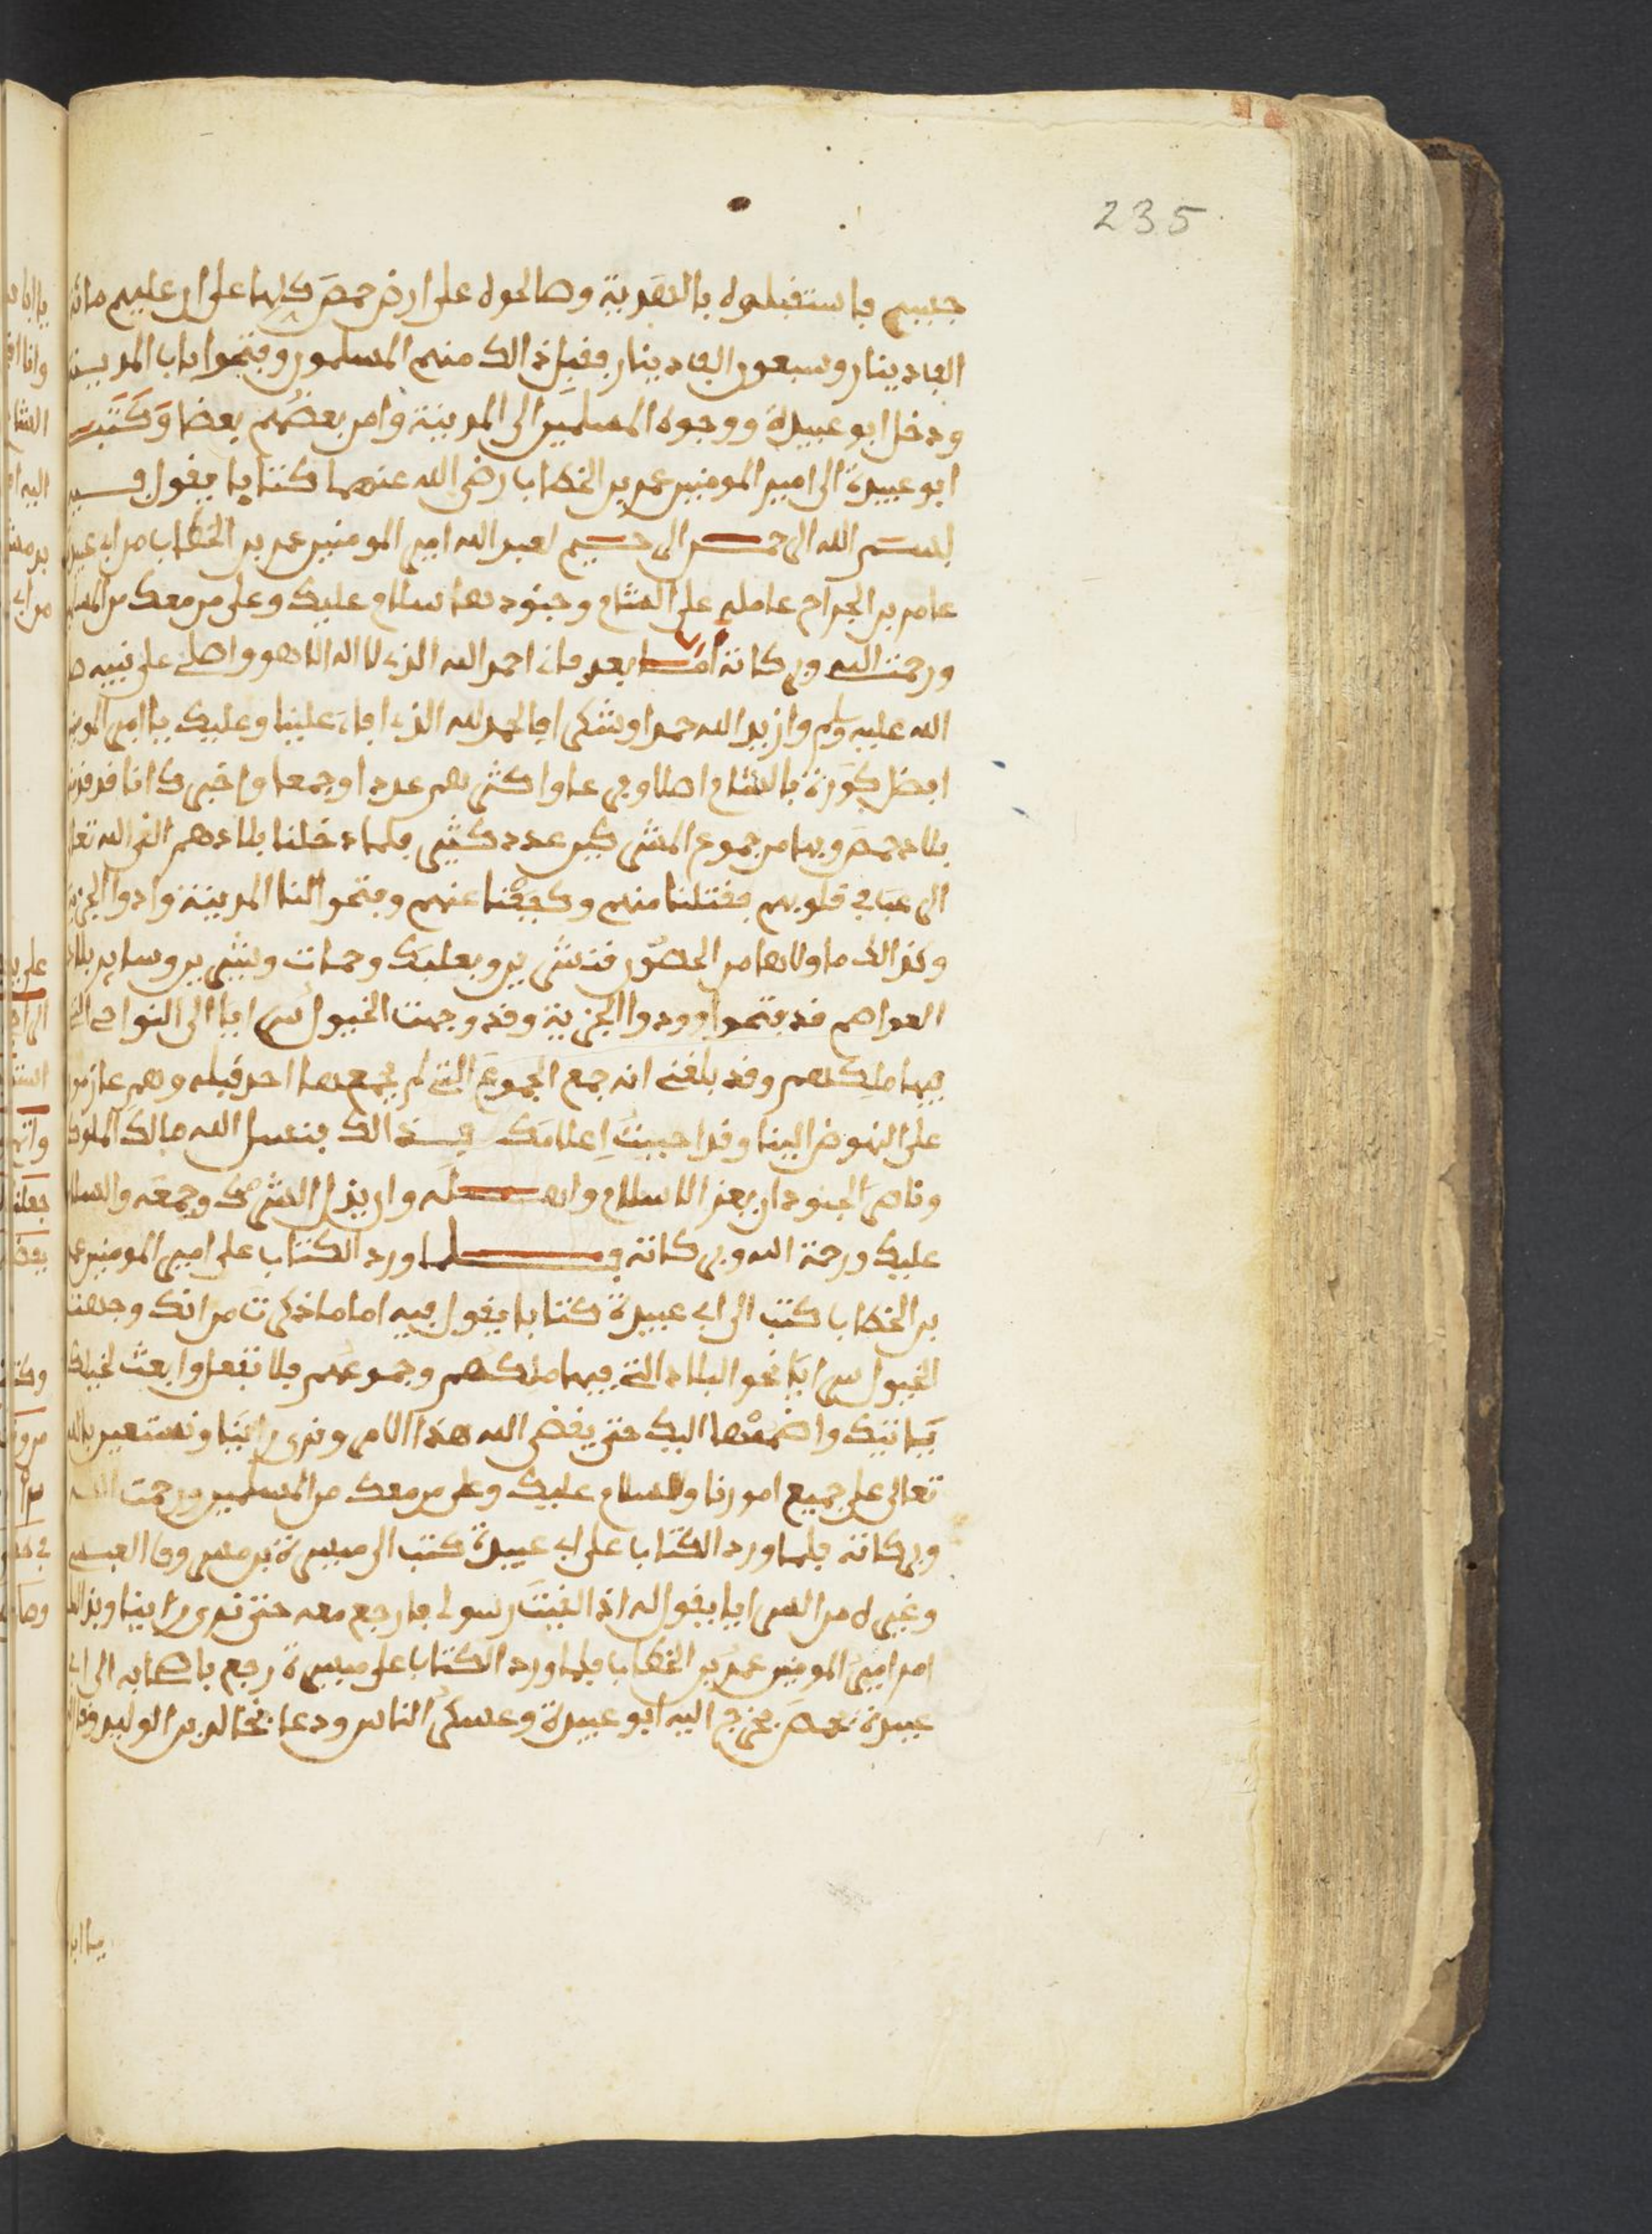 235
حبيب فاستقبلوه بالتقدية وصالحوه على ارض حمص كلها على ان عليهم مائة
الف دينار وسبعون الف دينار فقبل ذالك منهم المسلمون وفتحوا باب المدينة
ودخل ابو عبيدة ووجوه المسلمين الى المدينة وامن بعضهم بعضا وكتب
ابو عبيدة الى امير المومنين عمر بن الخطاب رضى الله عنهما كتابا يقول فيه
بسم الله الرحمن الرحيم لعبد الله امير المومنين عمر بن الخطاب من ابى عبيدة
عامر بن الجراح عامله على الشام وجنودها سلام عليك وعلى من معك من المسلمين
ورحمت الله وبركاته اما بعد فانى احمد الله الذى لا اله الا هو واصلى على نبيه صلى
الله عليه وسلم وازيد الله حمدا وشكرا فالحمد لله الذى افاء علينا وعليك يا امير المومنين
افضل كورة بالشام اصلا وفرعا واكثرهم عددا وجمعا واخبرك انا قد قدمنا
بلاد حمص وبها من جموع المشركين عدد كثير فلما دخلنا بلادهم القى الله تعالى
الرعب فى قلوبهم فقتلنا منهم وكففنا عنهم وفتحوا لنا المدينة وادوا الجزية
وكذالك ما والاها من الحصون قنسرين وبعلبك وحمات وشيزر وسائر بلاد
العواصم قد فتحوا وودوا الجزية وقد وجهت الخيول سرايا الى النواحى التى
فيها ملكهم وقد بلغنى انه جمع الجموع التى لم يجمعها احد قبله وهم عازمون
على النهوض الينا وقد احببت اعلامك بذالك فنسل الله مالك الملوك
وناصر الجنود ان يعز الاسلام واهله وان يذل الشرك وجمعه والسلام
عليك ورحمة الله وبركاته فلما ورد الكتاب على امير المومنين عمر
بن الخطاب كتب الى ابى عبيدة كتابا يقول فيه اما ما ذكرت من انك وجهت
الخيول سرايا نحو البلاد التى فيها ملكهم وجموعهم فلا تفعل وابعث لخيلك
فياتيك واضممها اليك حتى يقضى الله هذا الامر ونرى راينا ونستعين بالله
تعالى على جميع امورنا والسلام عليك وعلى من معك من المسلمين ورحمت الله
وبركاته فلما ورد الكتاب على ابى عبيدة كتب الى ميسرة بن مسروق العبسى
وغيره من السرايا يقول له اذا لقيت رسولى فارجع معه حتى نرى راينا وبذالك
امر امير المومنين عمر بن الخطاب فلما ورد الكتاب على ميسرة رجع باصحابه الى ابى
عبيدة بحمص فخرج اليه ابو عبيدة وعسكر الناس ودعا بخالد بن الوليد وقال